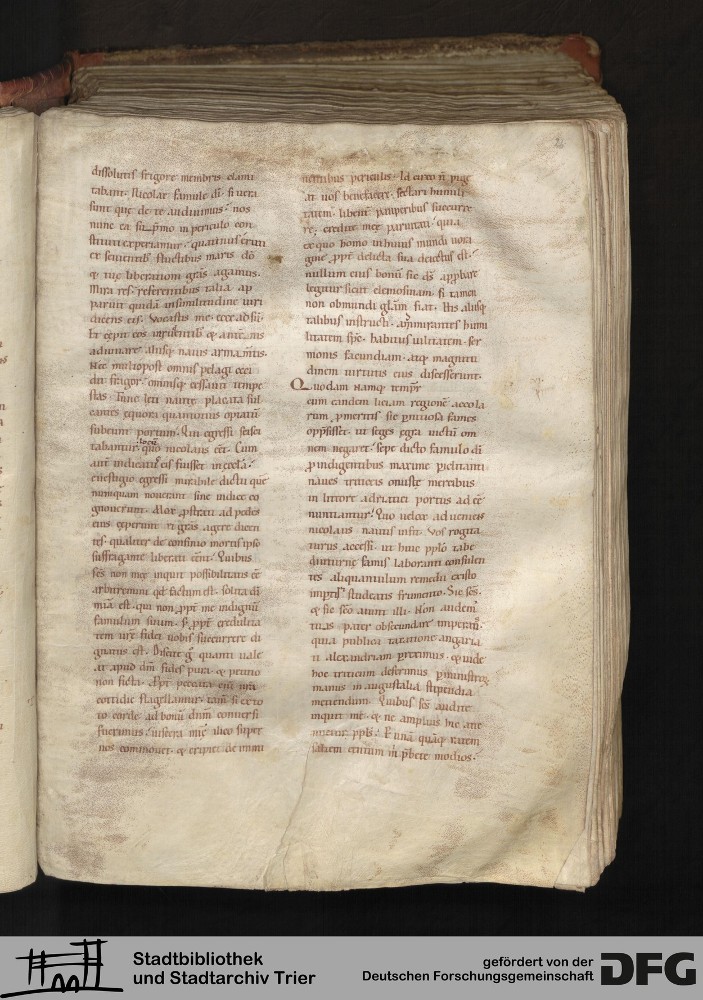 dissolutis frigore membris clami
tabant. Nicolae famule dī. si uera
sunt que de te audiuimus. nos
nunc ea in periculo con
stituti experiamur. quatinus eruti
ex seuientibus fluctibus maris dō
& tue liberationi grās agamus.
Mira res. referentibus talia ap
paruit quidā in similitudine uiri
dicens eis. Vocastis me. ecce adsū.
Et cepit eos in &
adiuuare aliisq; nauis armamtis.
Nec multopost omnis pelagi ceci
dit fragor. omnisq; cessauit tempe
stas. Tunc leti naute placata sul
cantes equora quantotius optatū
subeunt portum. Qui egressi sciscı
tabantur quo locū nicolaus eēt. Cum
aut indicatū eis fuisset in eccla.
e uestigio egressi mirabile dictu que
numquam nouerant sine indice co
gnouerunt. Mox prostrati ad pedes
eius ceperunt ei grās agere dicen
tes qualiter de confinio mortis ipso
suffragante liberati eent. Quibus
scs non mee inquit possibilitatis eē
arbitremini qd factum est. solita dī
mīa est. qui non ppt me indignū
famulum suum. s; ppt credulita
tem ure fidei uobis succurrere di
gnatus est. Discite g quanti uale
at apud dm fides pura. & petitio
non ficta. Ppt peccata eni nra
cottidie flagellamur. tam si ex to
to corde ad bonū dnm conuersi
fuerimus. uiscera mie ilico super
nos commouet. & eripiet de inmi
nentibus periculis. Id circo n pige
at uos benefacere. sectari humili
tatem. libent pauperibus succurre
re. credite mee paruitati. quia
ex quo homo in huius mundi uora
gine ppt delicta sua deiectus est.
nullum eius bonū sic ds approbare
legitur sicut elemosinam. si tamen
non ob mundi glam fiat. His aliisq;
talibus instructi. ammirantes humi
litatem spc. habitus uilitatem. ser
monis facundiam. atq; magnitu
dinem uirtutis eius discesserunt.
Quodam namq; tempr
cum eandem liciam regione accola
rum pmeritis sic pnitiosa fames
oppssisset. ut seges egra uictū om
nem negaret. sepe dicto famulo dī
p indigentibus maxime pielitanti
naues triticeis onuste mercibus
in littore adriatici portus ad eē
nuntiantur. Quo uelox adueniens
nicolaus nautis infit. Vos rogita
turus accessi. ut huic pplo tabe
diuturne famis laboranti consulen
tes aliquantulum remedii ex isto
impriſ studeatis frumento. Sic scs.
& sic sco aiunt illi. Non audem
tuis pater obsecundare imperiis.
quia publica taxatione angaria
ti alexandriam petimus. & inde
hoc triticum deferimus pministrorz
manus in augustalia stipendia
metiendum. Quibus scs audite
inquit me. & ne amplius hic atte
nuetur ppls. P unā quāq; ratem
saltem centum m pbete modios.
Stadtbibliothek
und Stadtarchiv Trier
gefördert von der
Deutschen Forschungsgemeinschaft
DFG